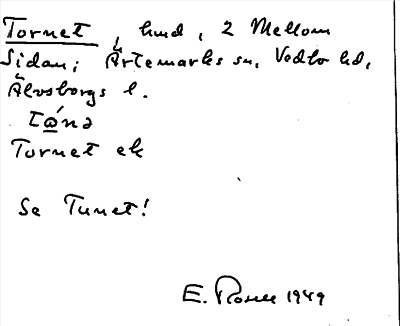 Tornet, hmd, 2 Mellom
Sidan; Ärtemarks sn, Vedbo hd,
Älvsborgs l.
tǿnə
Tornet ek
Se Tunet!
E. Rosell 1949